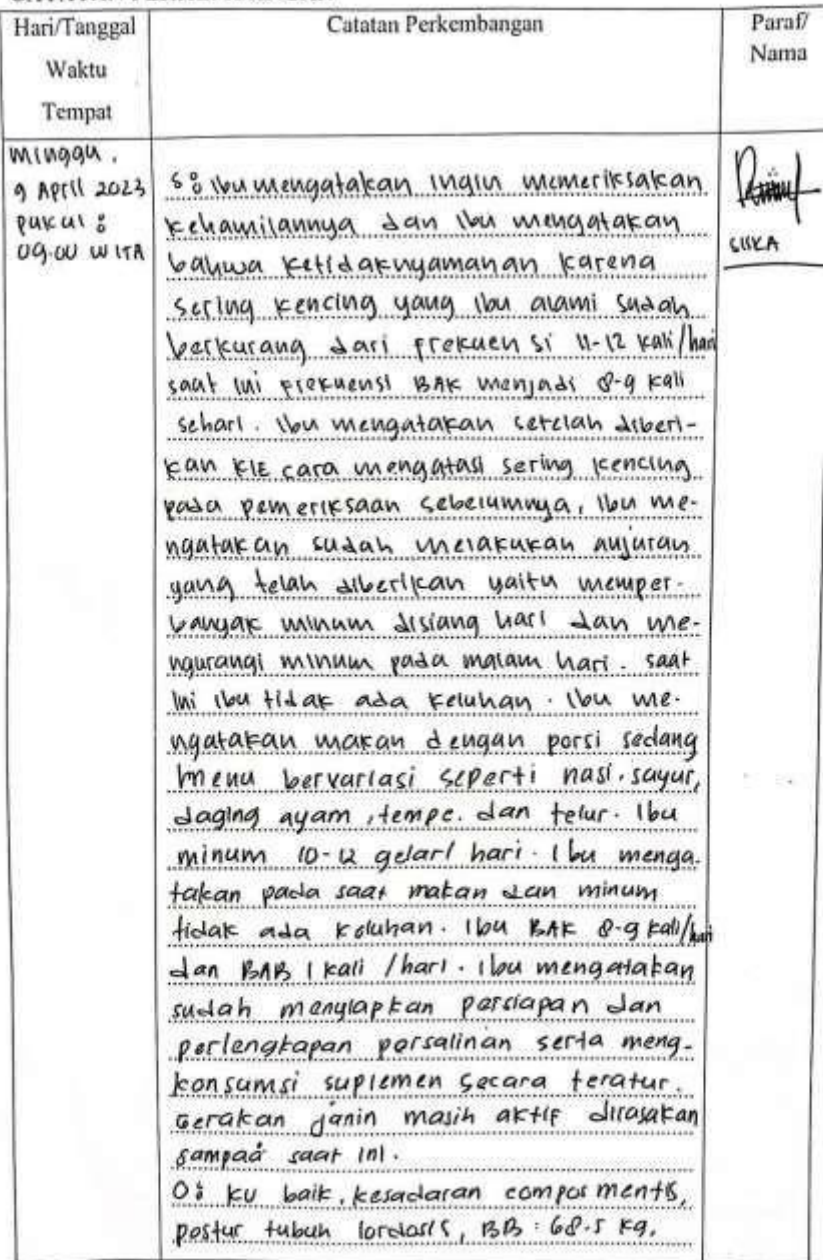 Hari/Tanggal
Waktu
Tempat
Catatan Perkembangan
Paraf/
Nama
Minggu,
9 April 2023
pukul :
09.00 WITA
S : Ibu mengatakan ingin memeriksakan
kehamilannya dan Ibu mengatakan
bahwa ketidaknyamanan karena
sering kencing yang ibu alami sudah
berkurang dari frekuensi 11-12 kali/hari
saat ini frekuensi BAK menjadi 8-9 kali
sehari. Ibu mengatakan setelah diberi-
kan KIE cara mengatasi sering kencing
pada pemeriksaan sebelumnya, Ibu me-
ngatakan sudah melakukan anjuran
yang telah diberikan yaitu memper-
banyak minum disiang hari dan me-
ngurangi minum pada malam hari. saat
ini ibu tidak ada keluhan. Ibu me-
ngatakan makan dengan porsi sedang
menu bervariasi seperti nasi, sayur,
daging ayam, tempe, dan telur. Ibu
minum 10-12 gelar/ hari. Ibu menga-
takan pada saat makan dan minum
tidak ada keluhan. Ibu BAK 8-9 kali/hari
dan BAB 1 kali /hari. Ibu mengatakan
sudah menyiapkan persiapan dan
perlengkapan persalinan serta meng-
konsumsi suplemen secara teratur.
Gerakan janin masih aktif dirasakan
sampai saat ini.
O : KU baik, kesadaran compos mentis,
postur tubuh lordosis, BB : 68.5 kg,